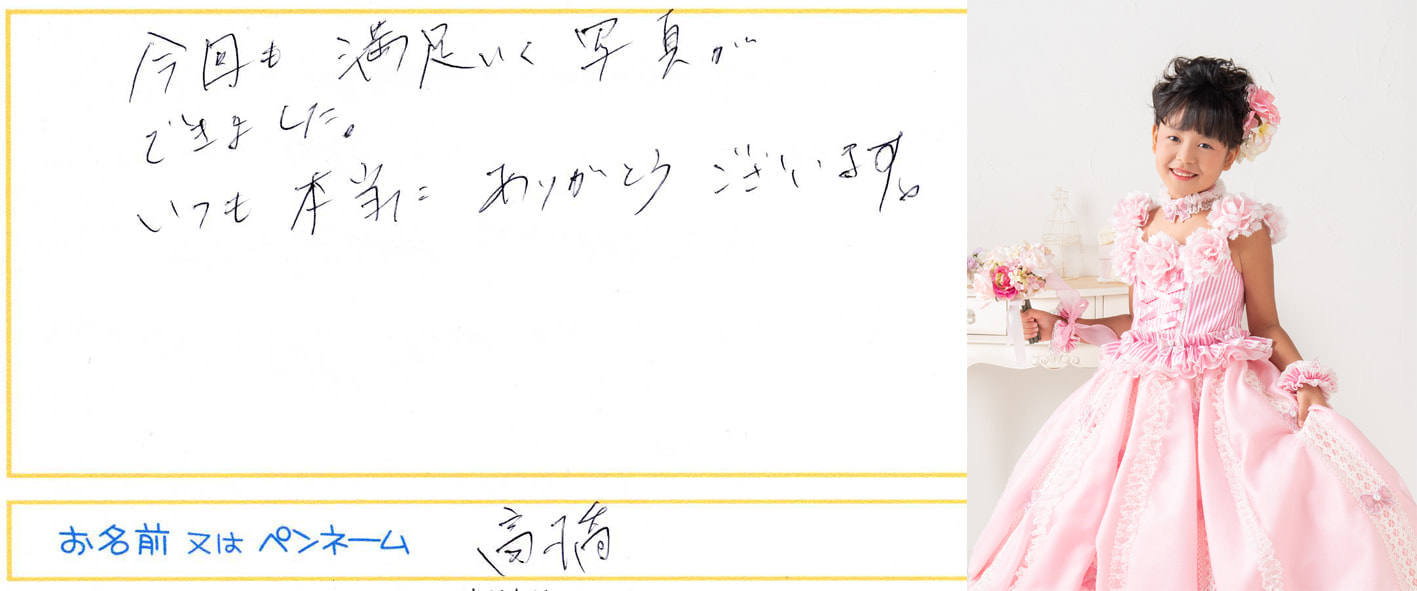 今回も 満足いく 写真が
できました。
いつも 本当に ありがとう ございます。
お名前 又は ペンネーム 高橋